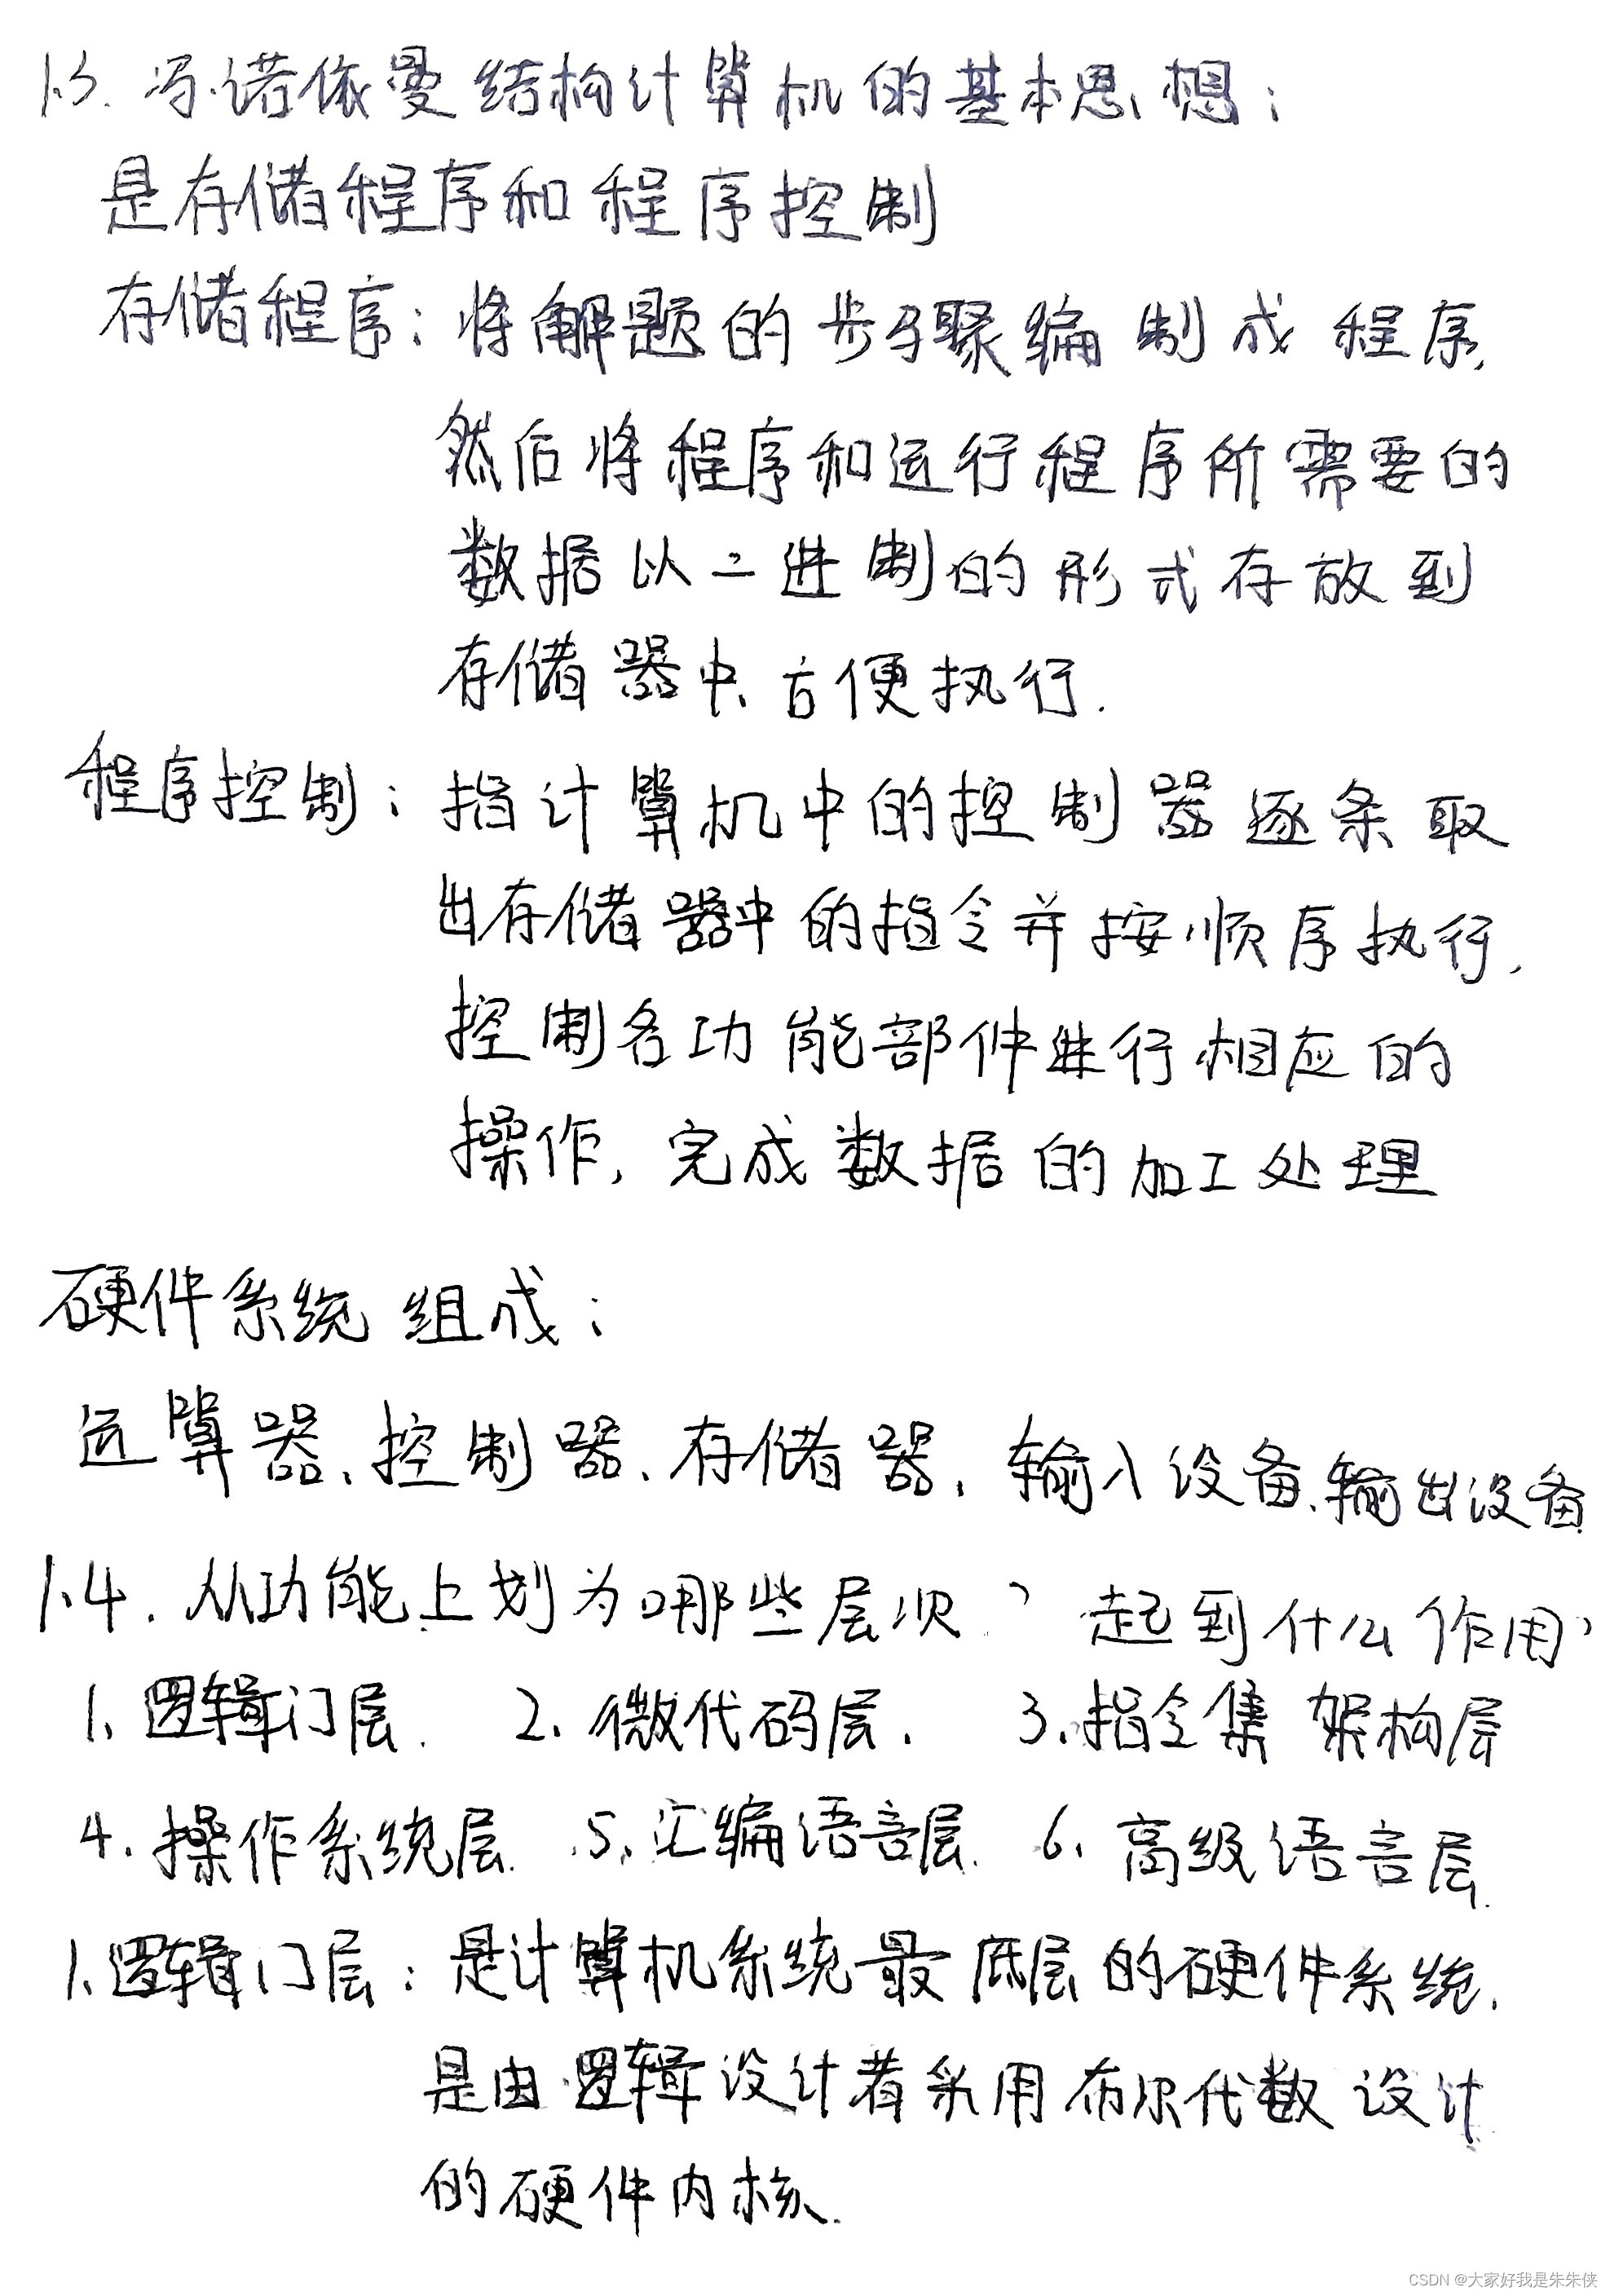 1.3. 冯·诺依曼结构计算机的基本思想：
是存储程序和程序控制
存储程序：将解题的步骤编制成程序，
然后将程序和运行程序所需要的
数据以二进制的形式存放到
存储器中、方便执行.
程序控制：指计算机中的控制器逐条取
出存储器中的指令并按顺序执行，
控制各功能部件进行相应的
操作，完成数据的加工处理
硬件系统组成：
运算器、控制器、存储器、输入设备、输出设备
1.4. 从功能上划为哪些层次？ 起到什么作用？
1、逻辑门层. 2. 微代码层. 3、指令集架构层
4. 操作系统层. 5、汇编语言层. 6、高级语言层.
1、逻辑门层：是计算机系统最底层的硬件系统.
是由逻辑设计者采用布尔代数设计
的硬件内核.
CSDN @大家好我是朱朱侠